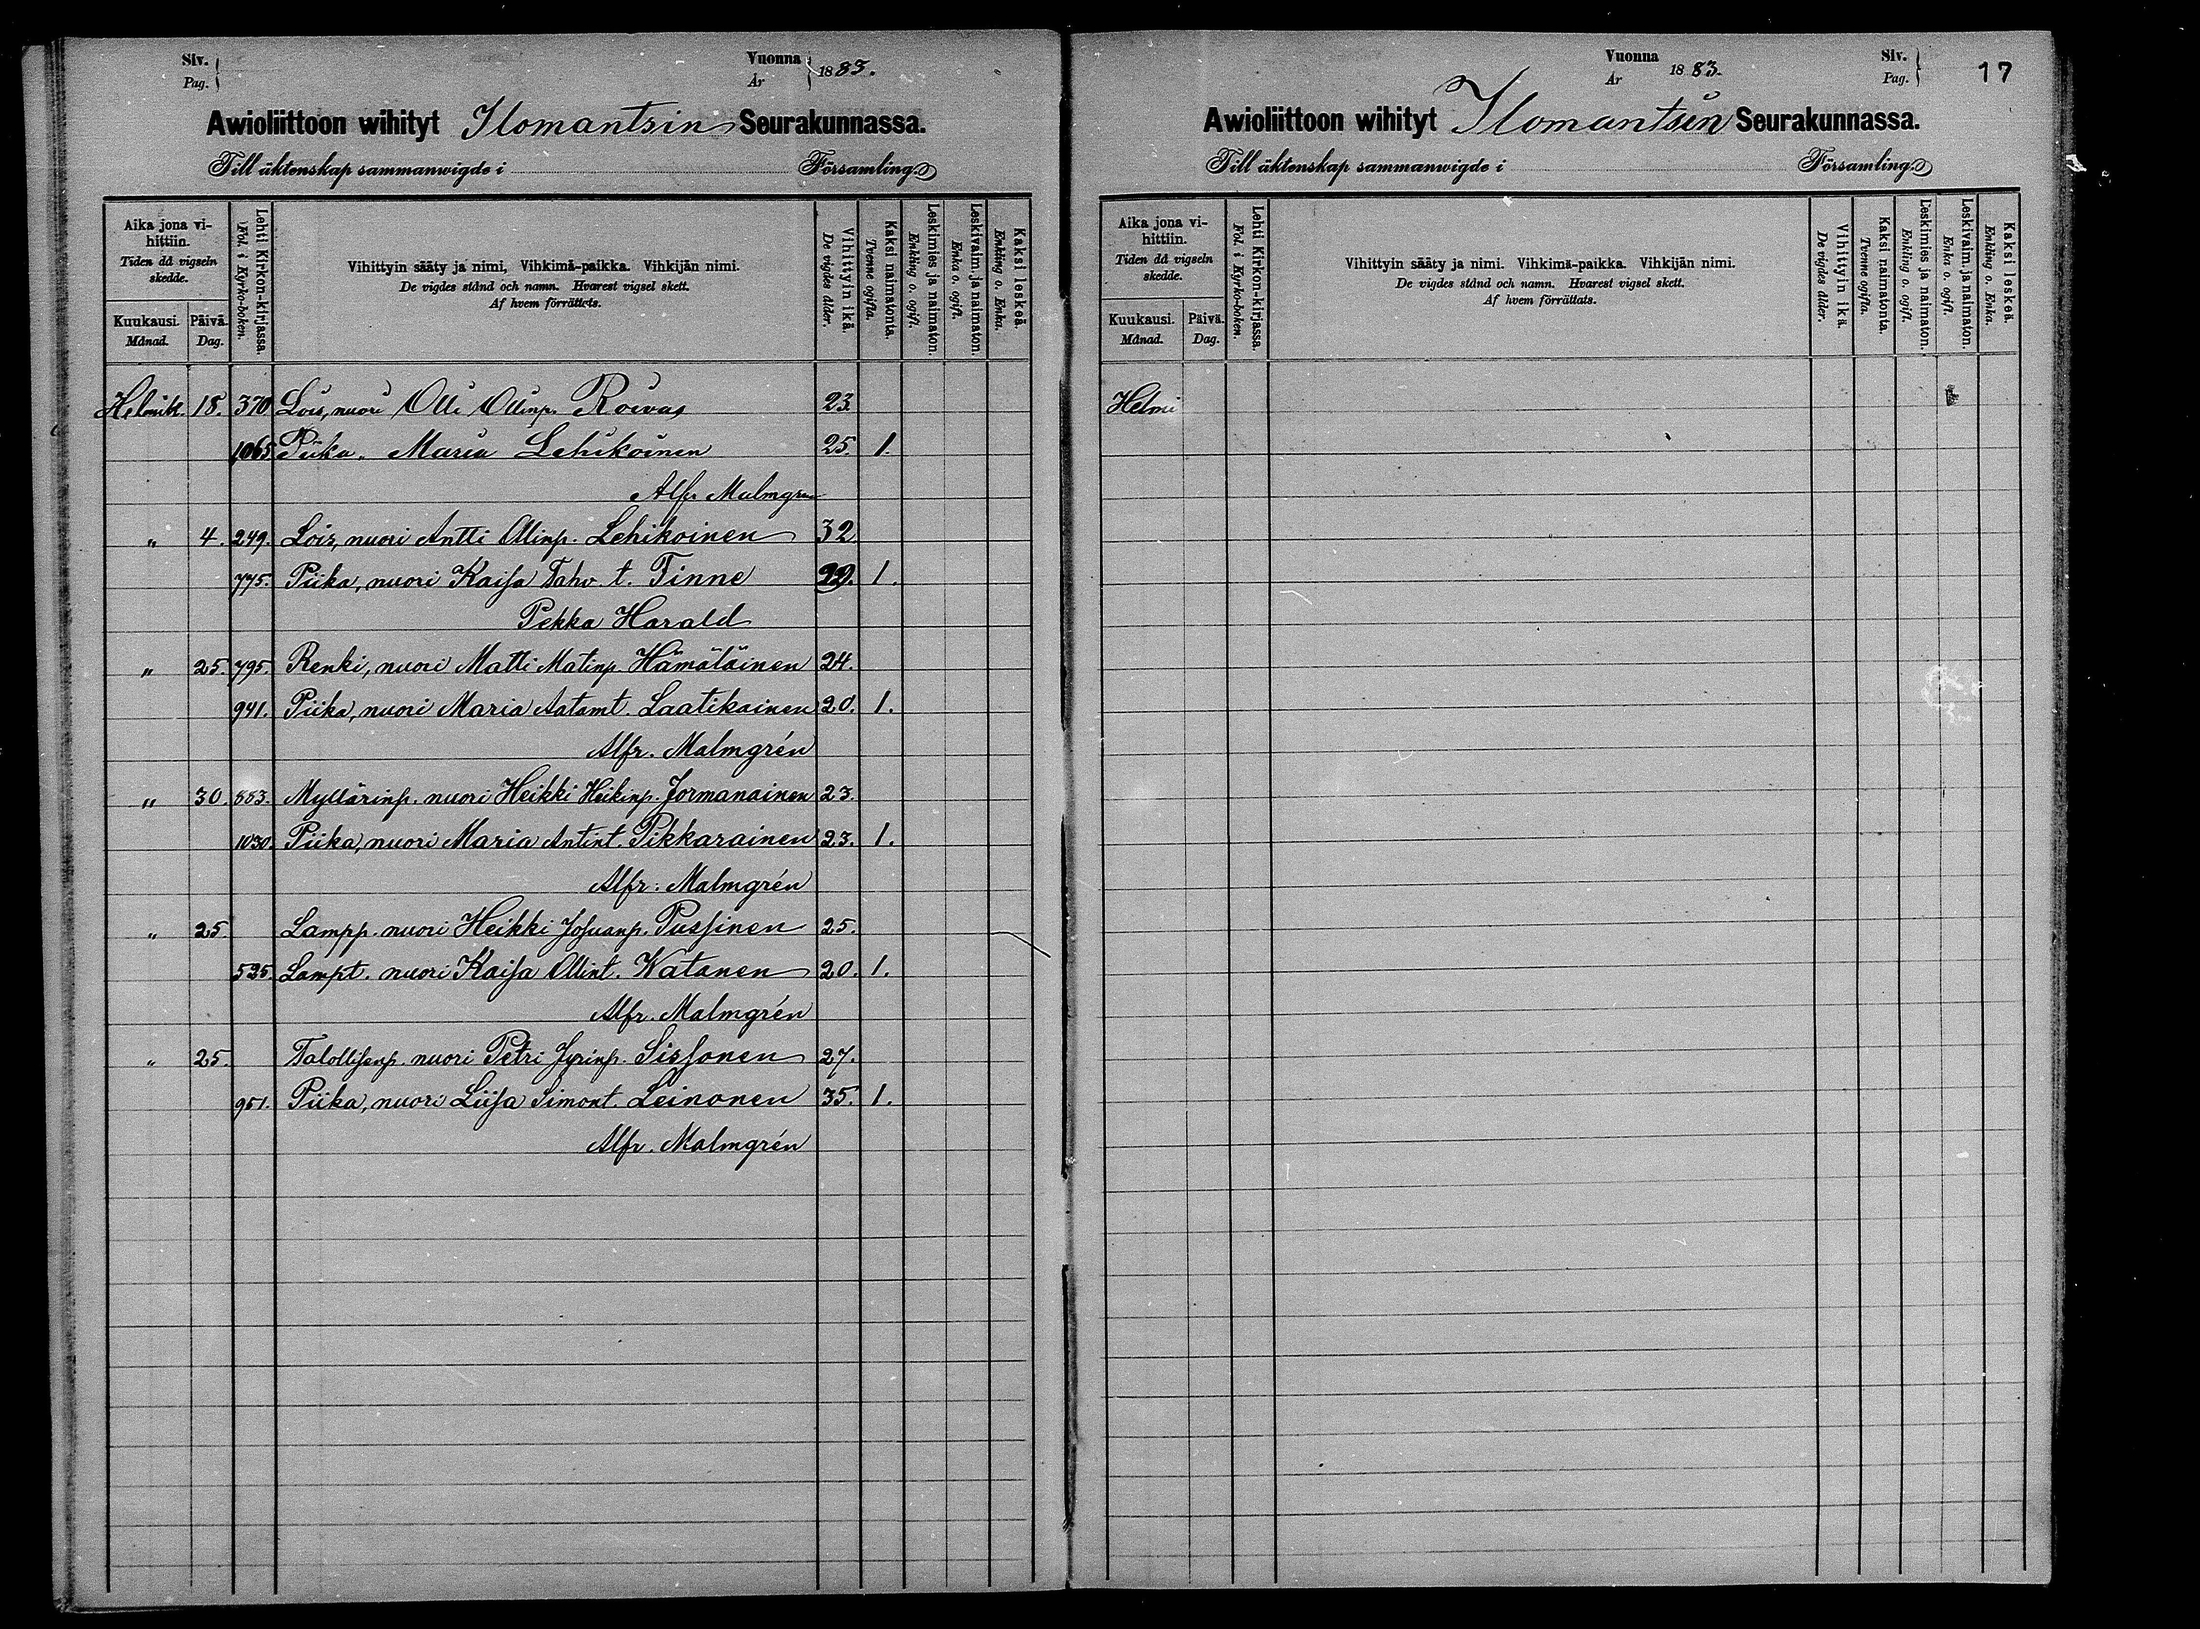 Siv.
Pag.
Vuonna
År
1883.
Awioliittoon wihityt Ilomantsin Seurakunnassa.
Till äktenskap sammanwigde i Församling.
Aika jona vihittiin.
Tiden då vigseln skedde.
Kuukausi.
Månad.
Päivä.
Dag.
Lehti Kirkon-kirjassa.
Fol. i Kyrko-boken.
Vihittyin sääty ja nimi, Vihkimä-paikka. Vihkijän nimi.
De vigdes stånd och namn. Hvarest vigsel skett.
Af hvem förrättats.
Vihittyin ikä.
De vigdes ålder.
Kaksi naimatonta.
Tvenne ogifta.
Leskimies ja naimaton.
Enkling o. ogift.
Leskivaim. ja naimaton.
Enka o. ogift.
Kaksi leskeä.
Enkling o. Enka.
Helmik. 18. 370 Lois, nuori Olli Ollinp. Roivas 23
1065 Piika, Maria Lehikoinen 25. 1.
Alfr Malmgren
" 4. 249. Lois, nuori Antti Ollinp. Lehikoinen 32
775. Piika, nuori Kaisa Tahv. t. Tinne 29. 1.
Pekka Harald
" 25. 795. Renki, nuori Matti Matinp. Hämäläinen 24.
941. Piika, nuori Maria Aatamt. Laatikainen 20. 1.
Alfr. Malmgrén
" 30. 883. Myllärinp. nuori Heikki Heikinp. Jormanainen 23.
1030. Piika, nuori Maria Antint. Pikkarainen 23. 1.
Alfr: Malmgrén
" 25. Lampp. nuori Heikki Josuanp. Pussinen 25.
525. Lampt. nuori Kaisa Ollint. Watanen 20. 1.
Alfr. Malmgrén
" 25. Talollisenp. nuori Petri Jyrinp. Sissonen 27.
951. Piika, nuori Liisa Simont. Leinonen 35. 1.
Alfr. Malmgrén
Vuonna
År
1883.
Siv.
Pag.
17
Awioliittoon wihityt Ilomantsin Seurakunnassa.
Till äktenskap sammanwigde i Församling.
Aika jona vihittiin.
Tiden då vigseln skedde.
Kuukausi.
Månad.
Päivä.
Dag.
Lehti Kirkon-kirjassa.
Fol. i Kyrko-boken.
Vihittyin sääty ja nimi. Vihkimä-paikka. Vihkijän nimi.
De vigdes stånd och namn. Hvarest vigsel skett.
Af hvem förrättats.
Vihittyin ikä.
De vigdes ålder.
Kaksi naimatonta.
Tvenne ogifta.
Leskimies ja naimaton.
Enkling o. ogift.
Leskivaim. ja naimaton.
Enka o. ogift.
Kaksi leskeä.
Enkling o. Enka.
Helmi